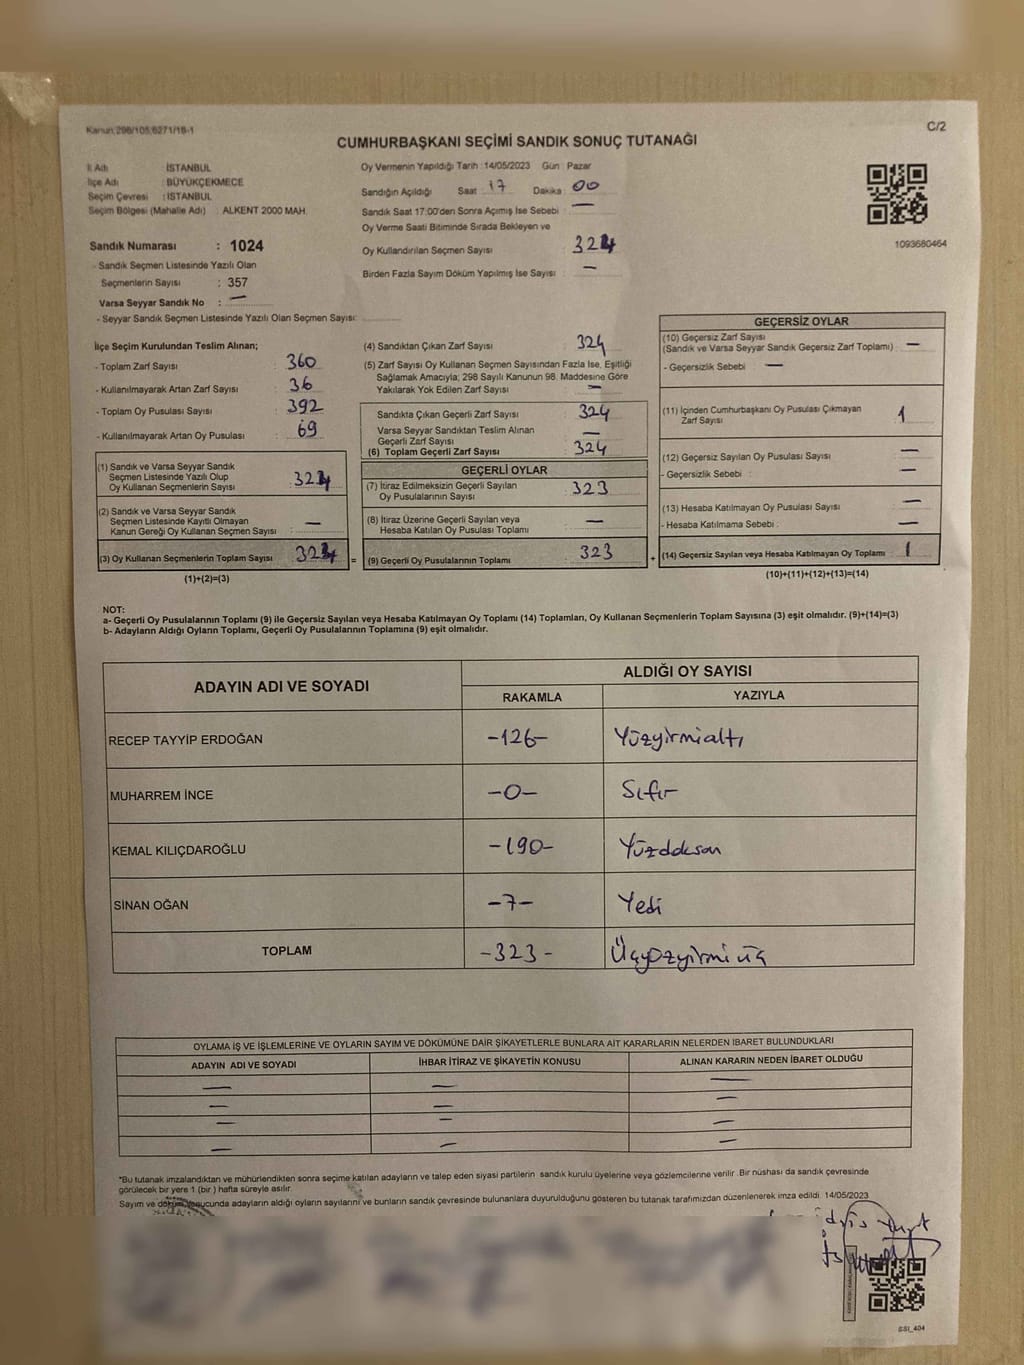 Kanun:298/105;6271/18-1
C/2
CUMHURBAŞKANI SEÇİMİ SANDIK SONUÇ TUTANAĞI
İl Adı : İSTANBUL
İlçe Adı : BÜYÜKÇEKMECE
Seçim Çevresi : İSTANBUL
Seçim Bölgesi (Mahalle Adı) : ALKENT 2000 MAH.
Sandık Numarası : 1024
- Sandık Seçmen Listesinde Yazılı Olan
Seçmenlerin Sayısı : 357
Varsa Seyyar Sandık No : —
- Seyyar Sandık Seçmen Listesinde Yazılı Olan Seçmen Sayısı:
Oy Vermenin Yapıldığı Tarih :14/05/2023 Gün : Pazar
Sandığın Açıldığı Saat : 17 Dakika : 00
Sandık Saat 17:00'den Sonra Açımış İse Sebebi : —
Oy Verme Saati Bitiminde Sırada Bekleyen ve
Oy Kullandırılan Seçmen Sayısı : 324
Birden Fazla Sayım Döküm Yapılmış İse Sayısı : —
1093680464
İlçe Seçim Kurulundan Teslim Alınan;
- Toplam Zarf Sayısı : 360
- Kullanılmayarak Artan Zarf Sayısı : 36
- Toplam Oy Pusulası Sayısı : 392
- Kullanılmayarak Artan Oy Pusulası : 69
(1) Sandık ve Varsa Seyyar Sandık
Seçmen Listesinde Yazılı Olup
Oy Kullanan Seçmenlerin Sayısı : 324
(2) Sandık ve Varsa Seyyar Sandık
Seçmen Listesinde Kayıtlı Olmayan
Kanun Gereği Oy Kullanan Seçmen Sayısı : —
(3) Oy Kullanan Seçmenlerin Toplam Sayısı : 324
(1)+(2)=(3)
=
(4) Sandıktan Çıkan Zarf Sayısı : 324
(5) Zarf Sayısı Oy Kullanan Seçmen Sayısından Fazla İse, Eşitliği
Sağlamak Amacıyla; 298 Sayılı Kanunun 98. Maddesine Göre
Yakılarak Yok Edilen Zarf Sayısı : —
Sandıkta Çıkan Geçerli Zarf Sayısı : 324
Varsa Seyyar Sandıktan Teslim Alınan
Geçerli Zarf Sayısı : —
(6) Toplam Geçerli Zarf Sayısı : 324
GEÇERLİ OYLAR
(7) İtiraz Edilmeksizin Geçerli Sayılan
Oy Pusulalarının Sayısı : 323
(8) İtiraz Üzerine Geçerli Sayılan veya
Hesaba Katılan Oy Pusulası Toplamı : —
(9) Geçerli Oy Pusulalarının Toplamı : 323
+
GEÇERSİZ OYLAR
(10) Geçersiz Zarf Sayısı
(Sandık ve Varsa Seyyar Sandık Geçersiz Zarf Toplamı) : —
- Geçersizlik Sebebi : —
(11) İçinden Cumhurbaşkanı Oy Pusulası Çıkmayan
Zarf Sayısı : 1
(12) Geçersiz Sayılan Oy Pusulası Sayısı : —
- Geçersizlik Sebebi : —
(13) Hesaba Katılmayan Oy Pusulası Sayısı : —
- Hesaba Katılmama Sebebi : —
(14) Geçersiz Sayılan veya Hesaba Katılmayan Oy Toplamı : 1
(10)+(11)+(12)+(13)=(14)
NOT:
a- Geçerli Oy Pusulalarının Toplamı (9) ile Geçersiz Sayılan veya Hesaba Katılmayan Oy Toplamı (14) Toplamları, Oy Kullanan Seçmenlerin Toplam Sayısına (3) eşit olmalıdır. (9)+(14)=(3)
b- Adayların Aldığı Oyların Toplamı, Geçerli Oy Pusulalarının Toplamına (9) eşit olmalıdır.
ADAYIN ADI VE SOYADI
ALDIĞI OY SAYISI
RAKAMLA YAZIYLA
RECEP TAYYİP ERDOĞAN -126- Yüzyirmialtı
MUHARREM İNCE -0- Sıfır
KEMAL KILIÇDAROĞLU -190- Yüzdoksan
SİNAN OĞAN -7- Yedi
TOPLAM -323- Üçyüzyirmi üç
OYLAMA İŞ VE İŞLEMLERİNE VE OYLARIN SAYIM VE DÖKÜMÜNE DAİR ŞİKAYETLERLE BUNLARA AİT KARARLARIN NELERDEN İBARET BULUNDUKLARI
ADAYIN ADI VE SOYADI İHBAR İTİRAZ VE ŞİKAYETİN KONUSU ALINAN KARARIN NEDEN İBARET OLDUĞU
— — —
— — —
— — —
— — —
*Bu tutanak imzalandıktan ve mühürlendikten sonra seçime katılan adayların ve talep eden siyasi partilerin sandık kurulu üyelerine veya gözlemcilerine verilir. Bir nüshası da sandık çevresinde
görülecek bir yere 1 (bir) hafta süreyle asılır.
Sayım ve döküm sonucunda adayların aldığı oyların sayılarını ve bunların sandık çevresinde bulunanlara duyurulduğunu gösteren bu tutanak tarafımızdan düzenlenerek imza edildi. 14/05/2023
SSI_404